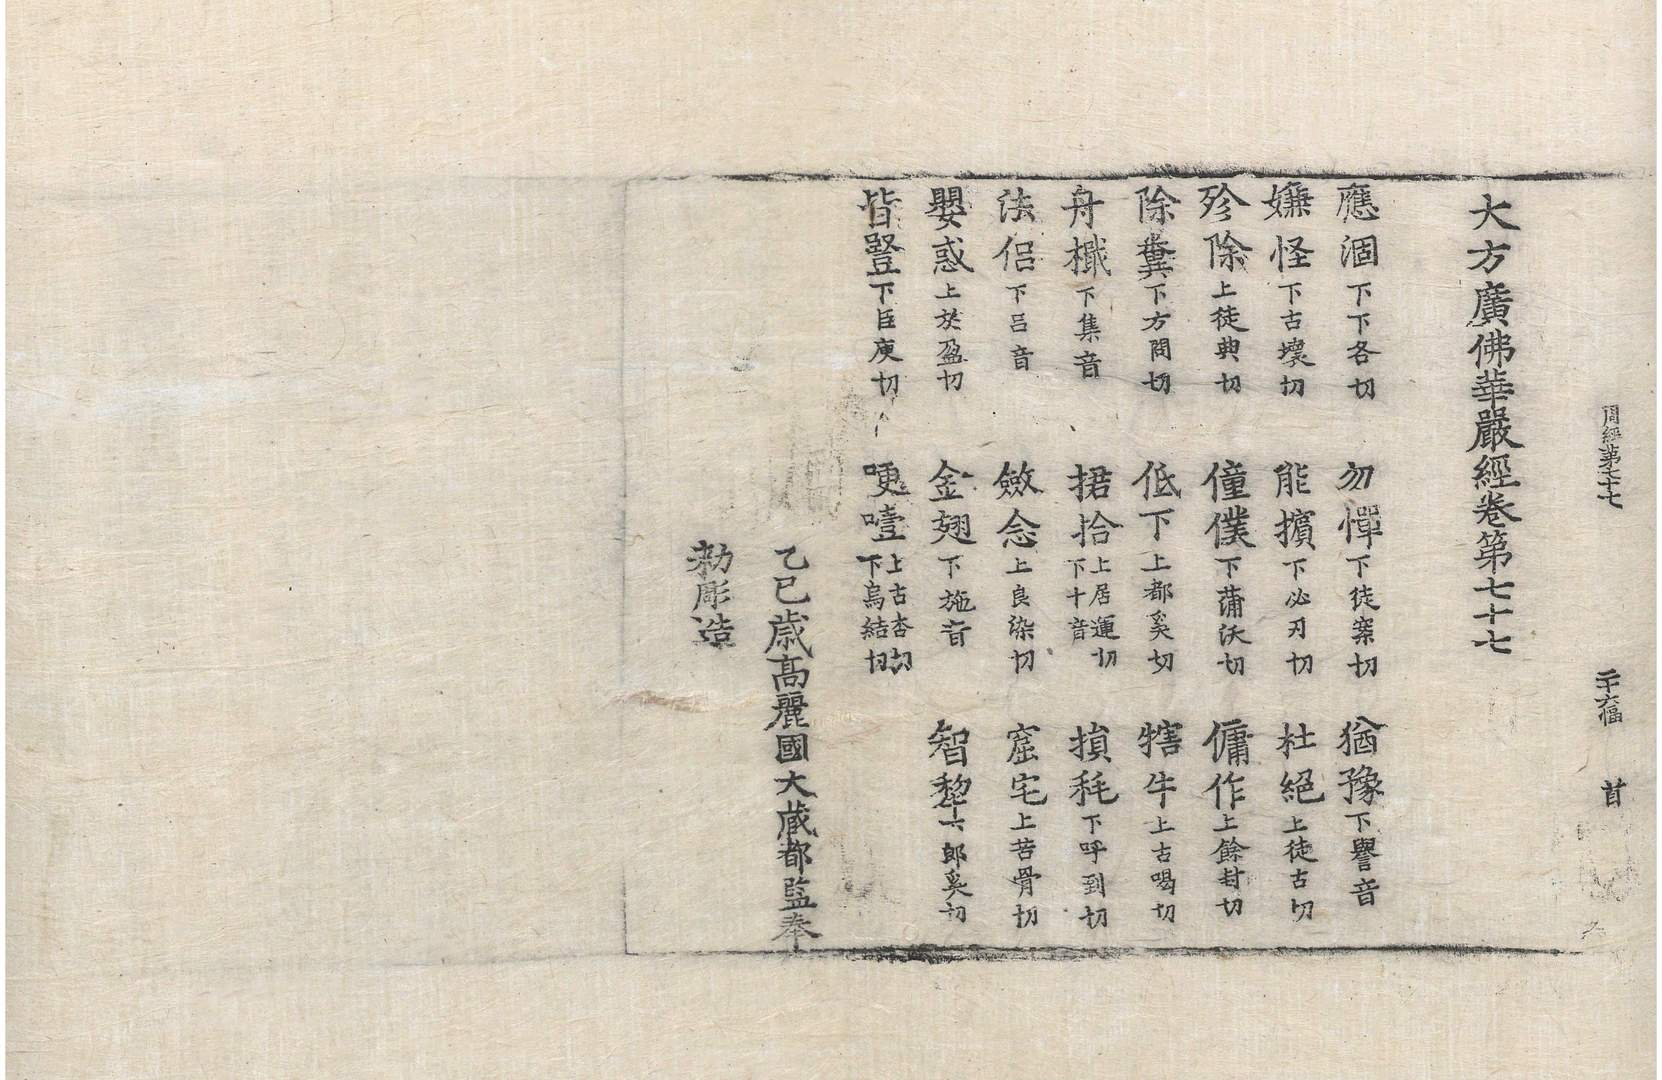 周經第七十七　二十六幅　首
大方廣佛華嚴經卷第七十七
應涸下下各切　勿憚下徒案切　猶豫下譽音
嫌怪下古壞切　能擯下必刃切　杜絕上徒古切
殄除上徒典切　僮僕下蒲沃切　傭作上餘封切
除糞下方問切　低下上都奚切　犗牛上古喝切
舟檝下集音　捃拾上居運切下十音　損秏下呼到切
法侶下呂音　斂念上良染切　窟宅上苦骨切
嬰惑上於盈切　金翅下施音　智犂下郎奚切
皆豎下臣庾切　哽噎上古杏切下烏結切
乙巳歲高麗國大藏都監奉
勑彫造